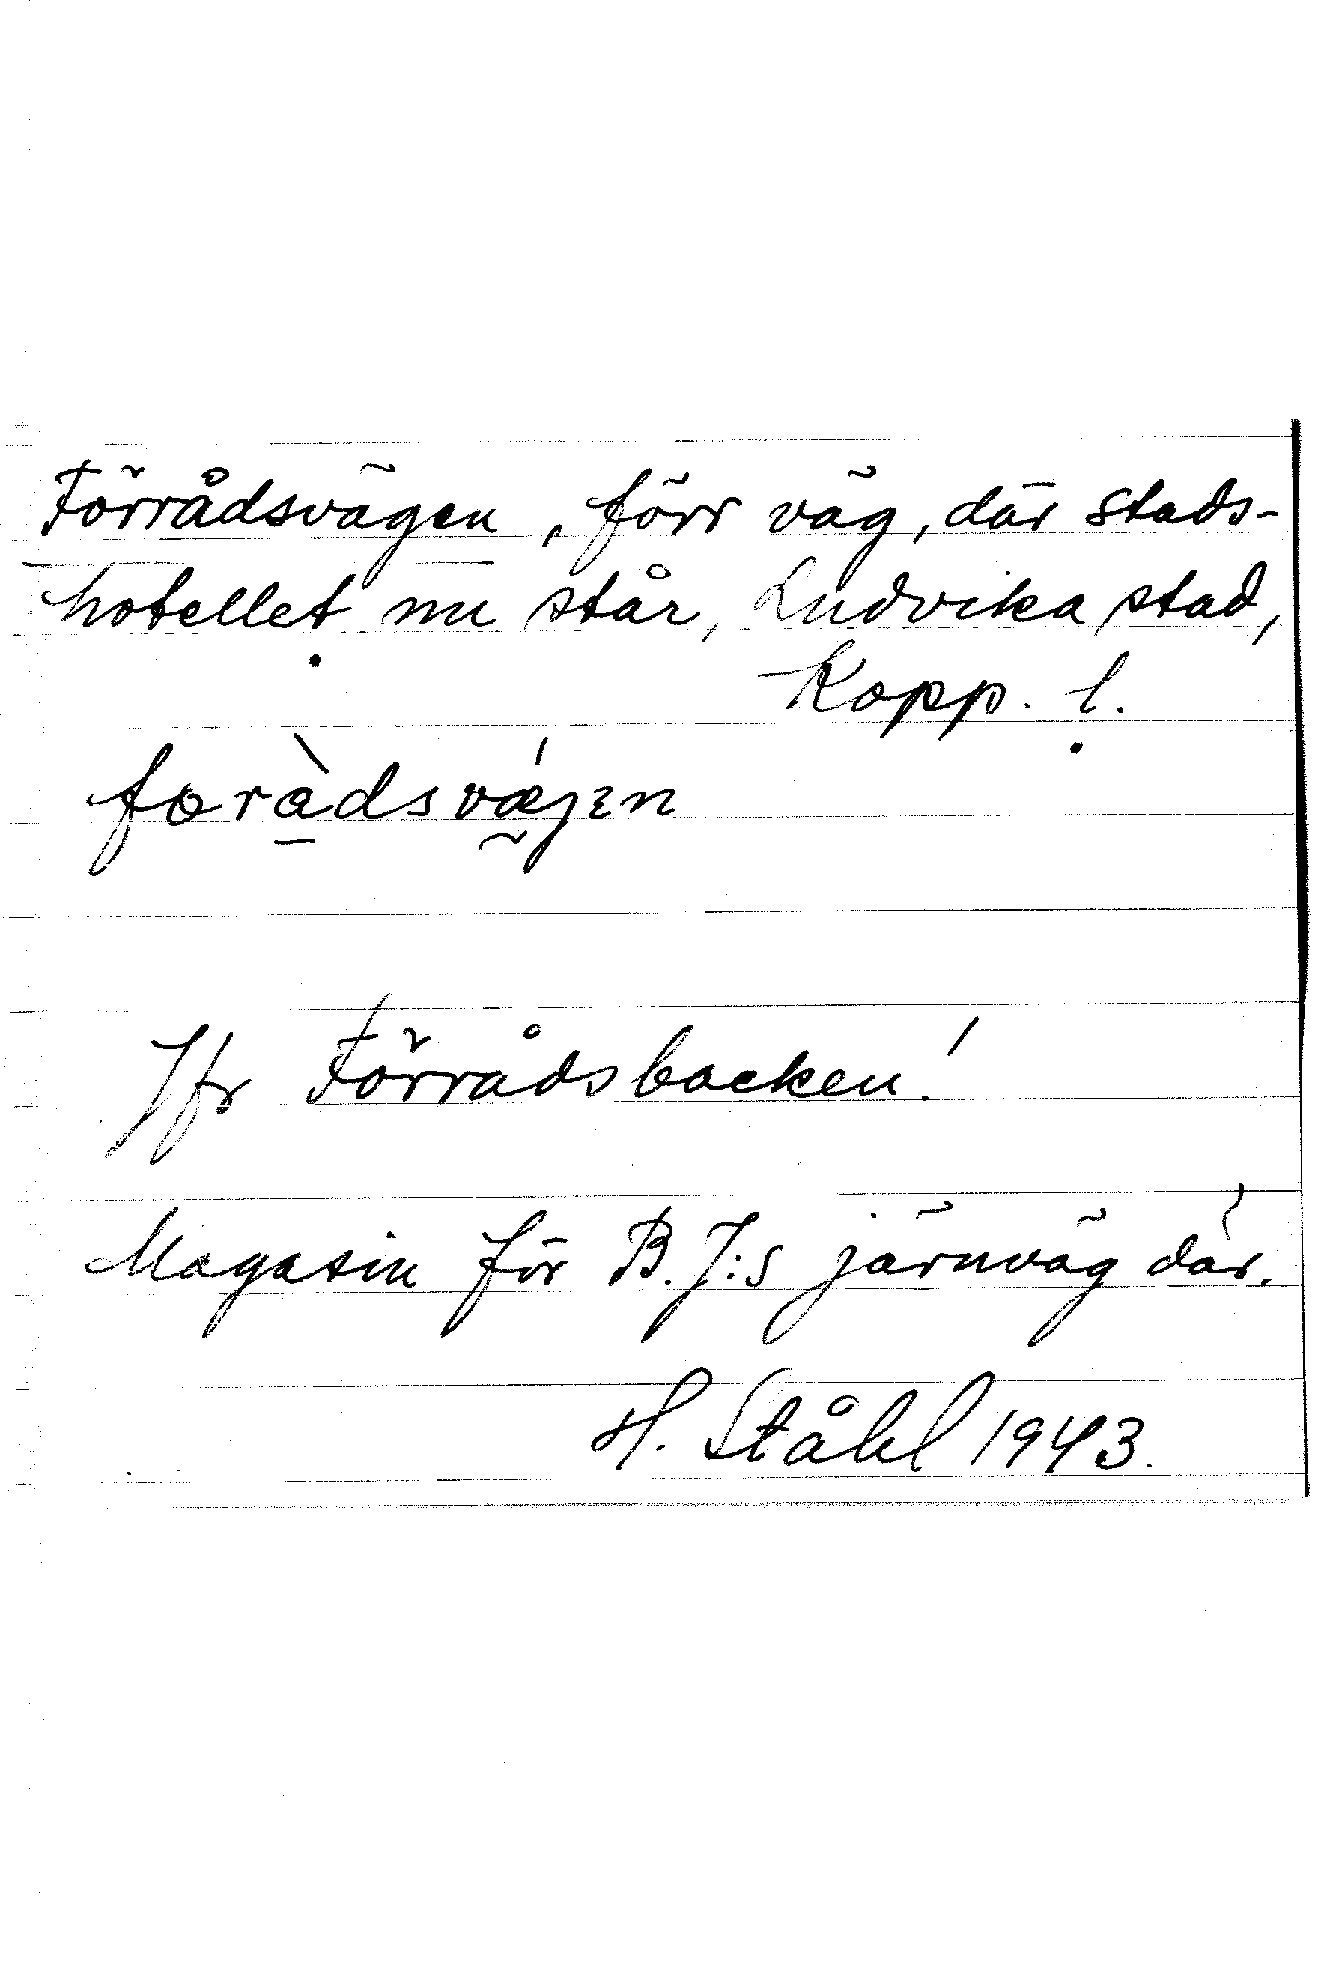 Förrådsvägen, förr väg, där stads-
hotellet nu står, Ludvika stad,
Kopp. l.
foràdsvǽjɛn
Jfr Förrådsbacken!
Magasin för B.J:s järnväg där.
H. Ståhl 1943.